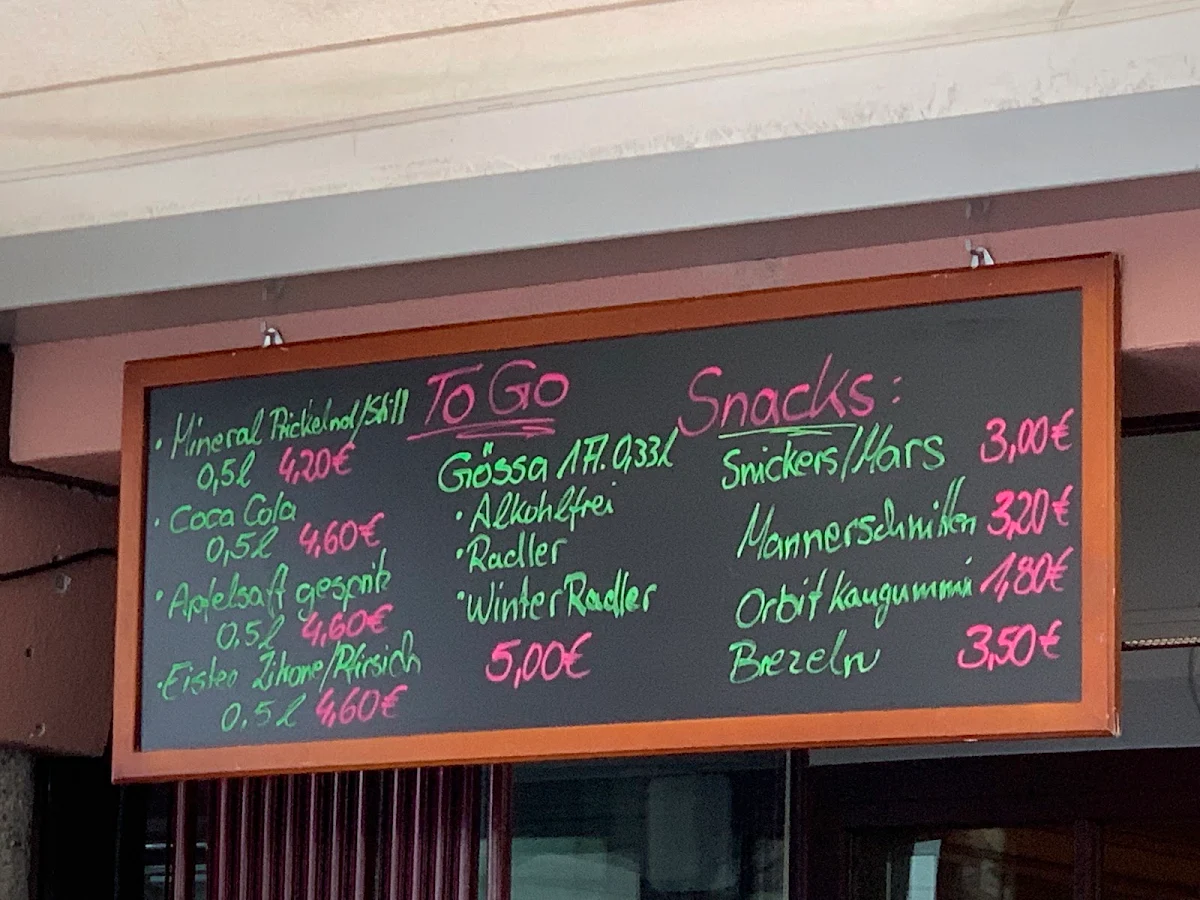 To Go
· Mineral Prickelnd/Still
0,5l 4,20€
· Coca Cola
0,5l 4,60€
· Apfelsaft gespritz
0,5l 4,60€
· Eistee Zitrone/Pfirsich
0,5l 4,60€
Gössa 1 Fl. 0,33l
· Alkoholfrei
· Radler
· Winter Radler
5,00€
Snacks:
Snickers/Mars 3,00€
Mannerschnitten 3,20€
Orbit Kaugummi 1,80€
Brezeln 3,50€